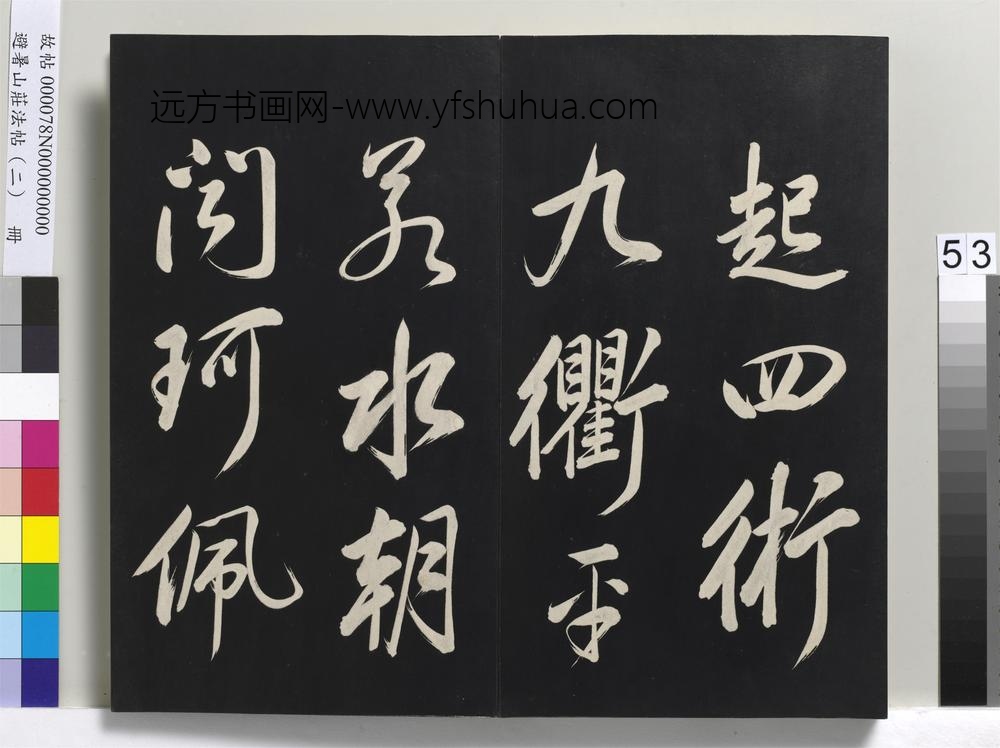 远方书画网-www.yfshuhua.com
起四術
九衢平
若水朝
聞珂佩
故帖 000078N000000000
避暑山莊法帖（二） 冊
53